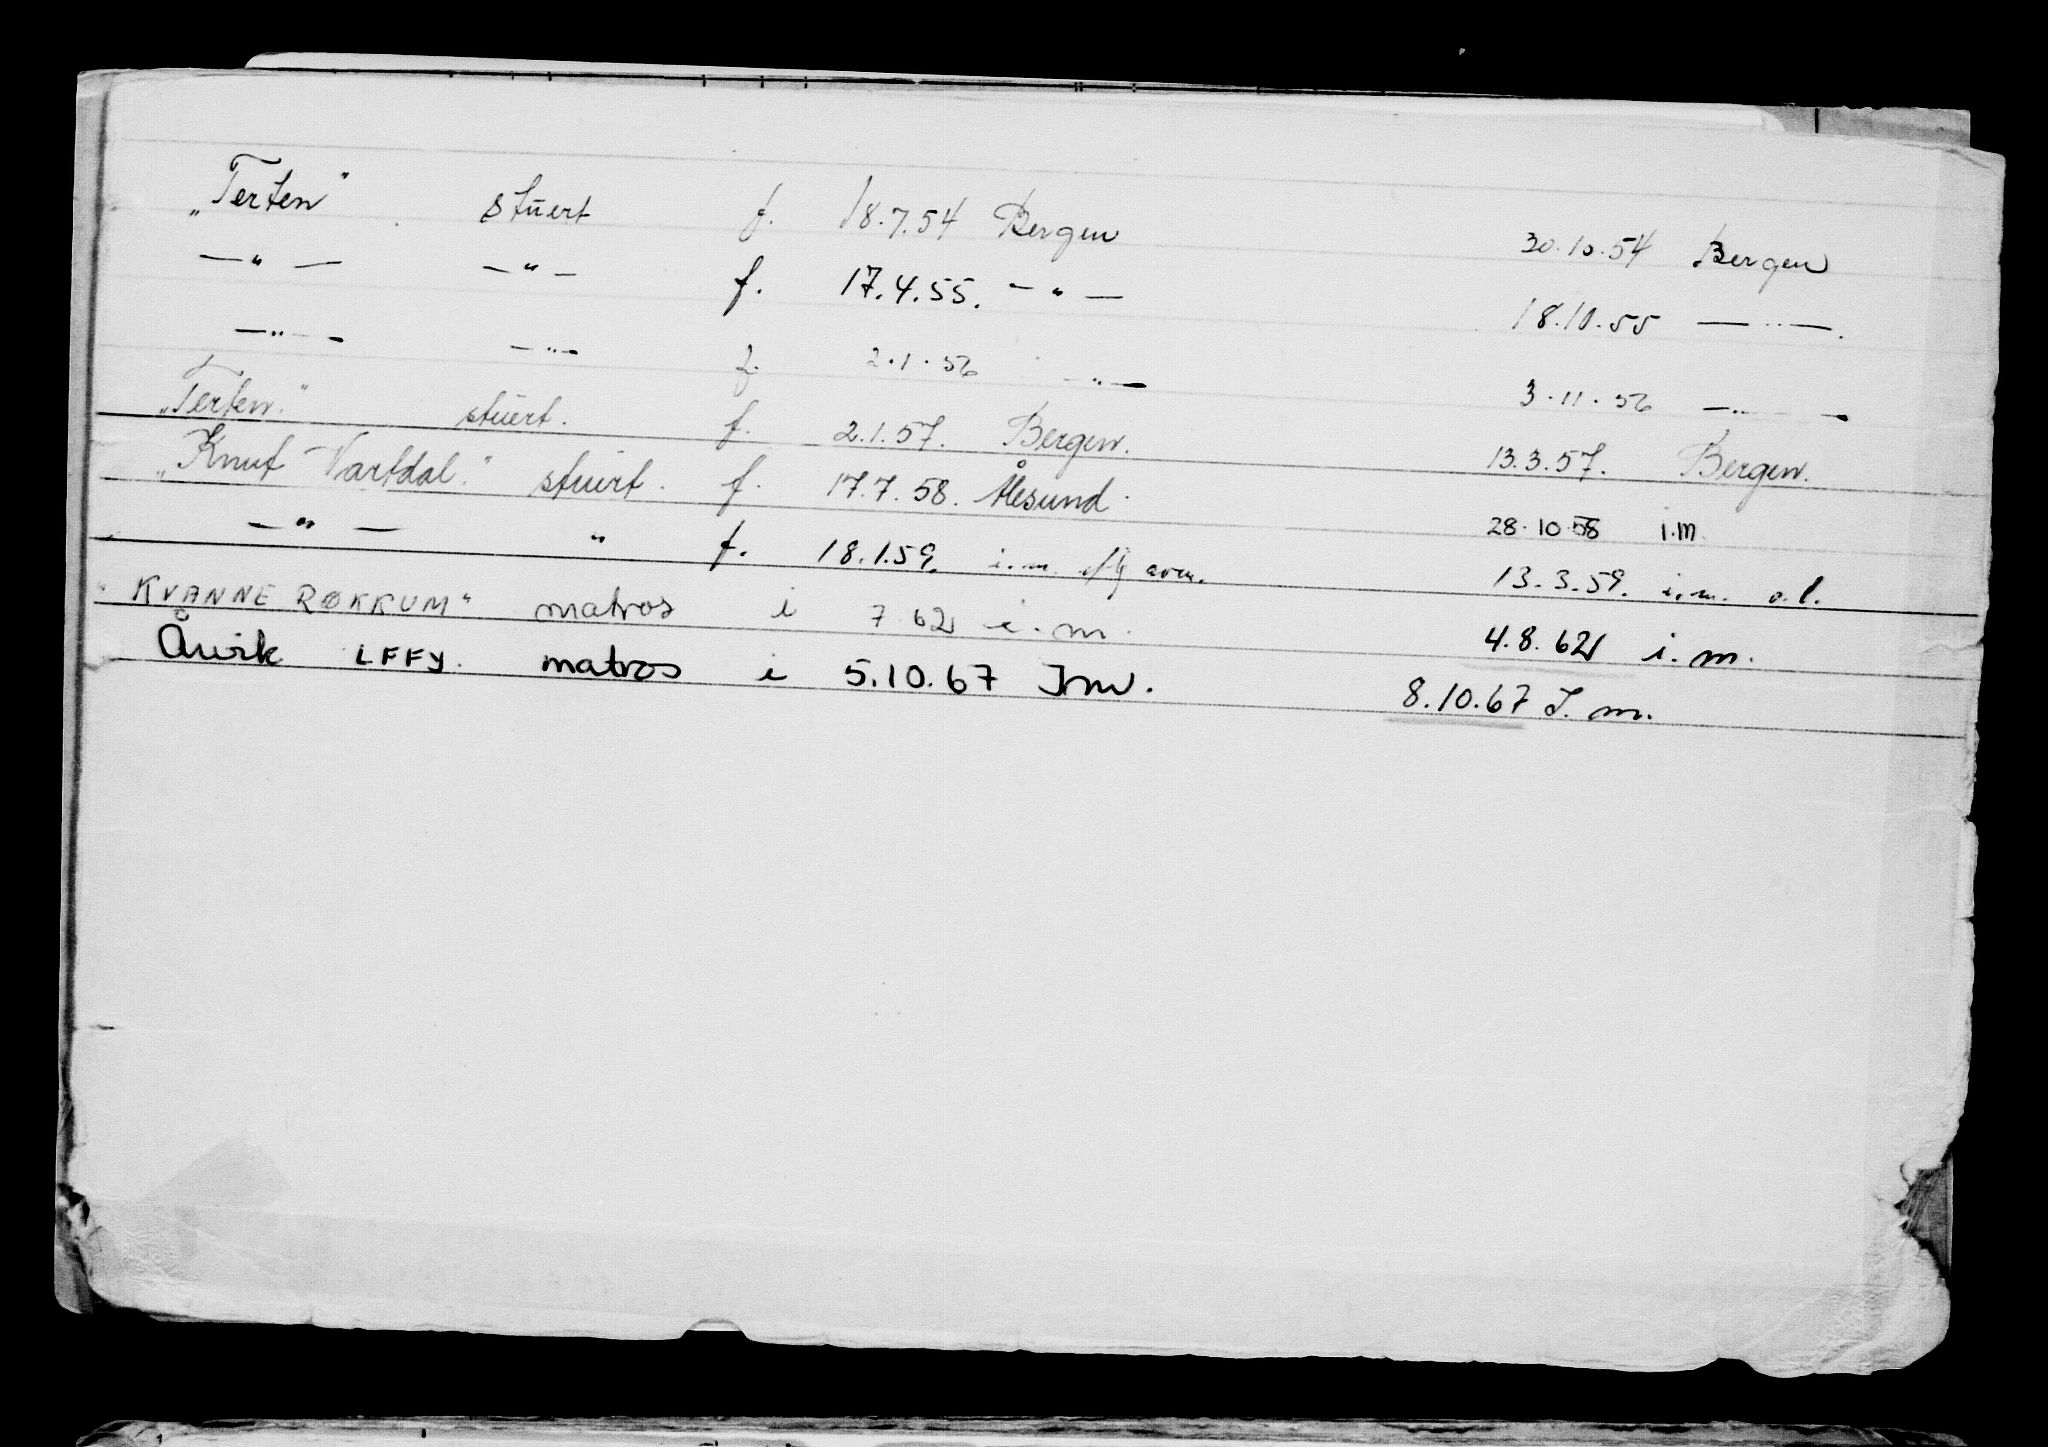 „Terten" stuert f. 18.7.54 Bergen 30.10.54 Bergen
—"— —"— f. 17.4.55. —"— 18.10.55 —"—.
—"— —"— f. 2.1.56 —"— 3.11.56 —"—
„Terten." stuert. f. 2.1.57. Bergen. 13.3.57. Bergen.
„Knut Vartdal." stuert. f. 17.7.58. Ålesund. 28.10.58 i.m.
—"— " f. 18.1.59. i.m. 13.3.59. i.m. o.l.
"KVANNE RØKKUM" matros i 7 62 i.m. 4.8.62 i.m.
Åvik LFFY. matros i 5.10.67 I m. 8.10.67 I. m.